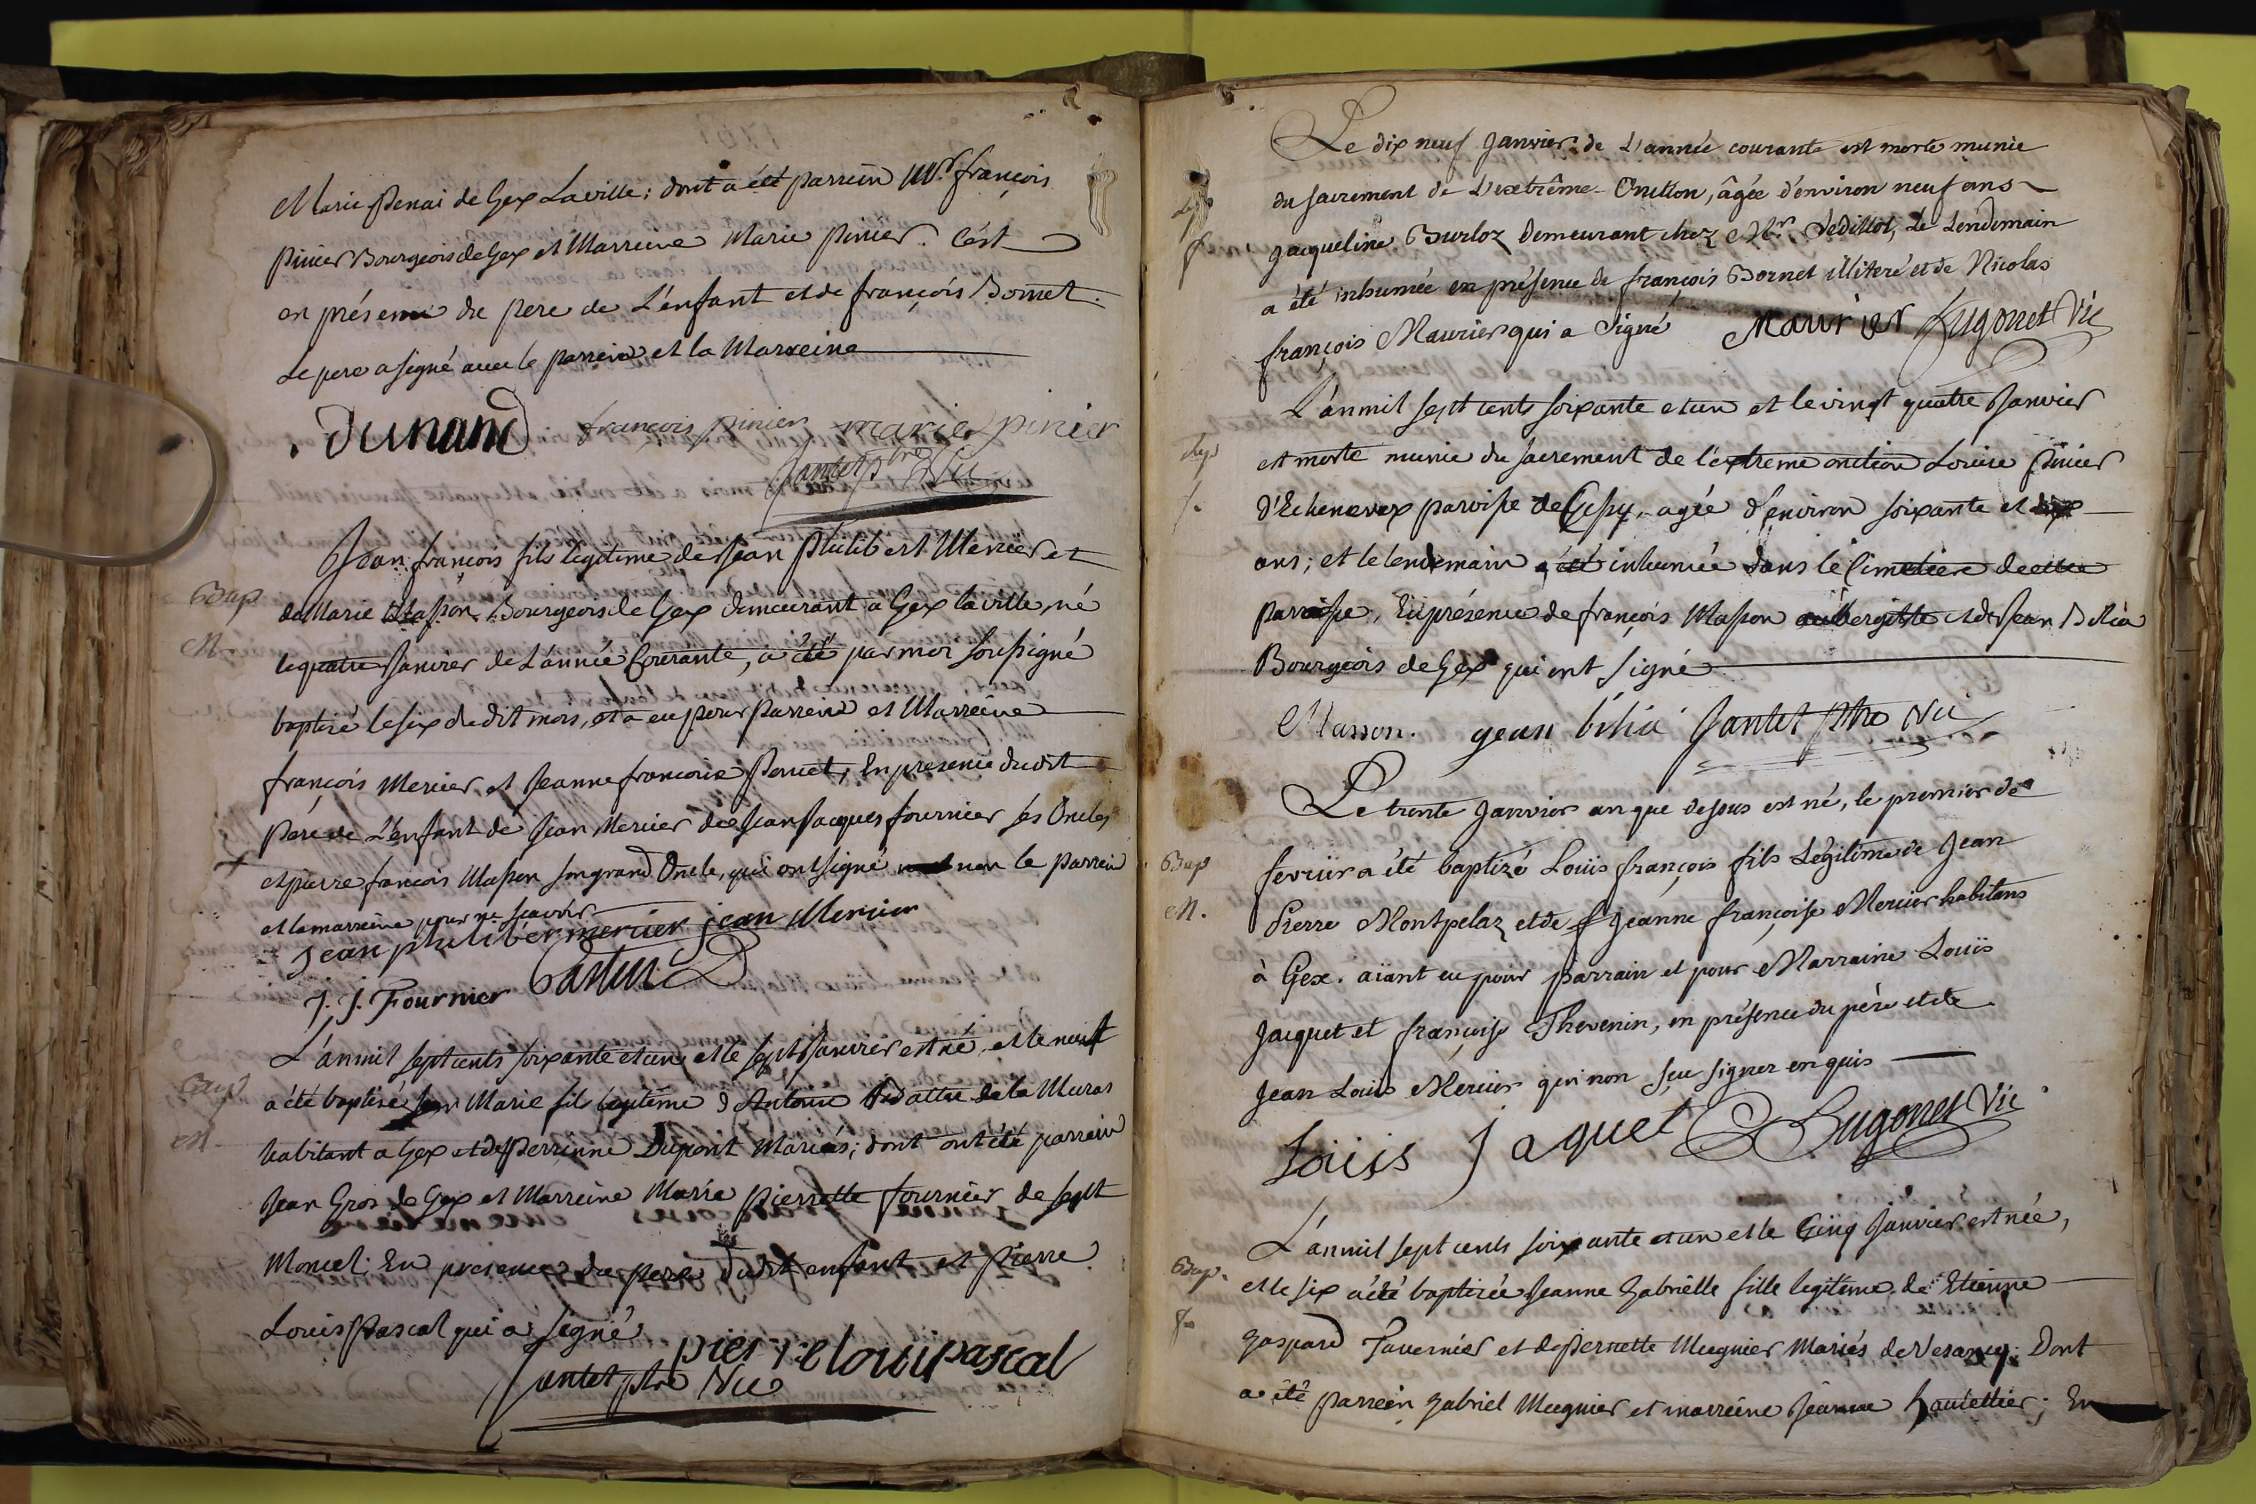 Marie penai de Gex Laville; dont a été parrein Mr. françois
pinier Bourgeois de Gex et Marreine Marie pinier. C'est
en présence du pere de L'enfant et de françois Bornet.
Le pere a signé avec le parrein et la Marreine
Dunand françois pinier marie pinier
Jantet ptre Vic
Bap
M.
Jean françois fils légitime de Jean philibert Mercier et
de Marie Masson Bourgeois de Gex demeurant a Gex la ville, né
le quatre Janvier de L'année Courante, a été par moi soussigné
baptisé le six du dit mois, et a eu pour parrein et Marreine
françois Mercier et Jeanne francoise Pernet, En presence dudit
pere de L'enfant de Jean Mercier de Jean Jacques fournier ses Oncles
et pierre francois Masson son grand Oncle, qui ont signé non le parrein
et la marreine pour ne scavoir
Jean philiber mercier jean Mercier
J. J. Fournier
Bap
M.
L'an mil sept cents soixante et un et le sept Janvier est né, et le neuf
a été baptisé Marie fils légitime d'Antoine de la Muras
habitant a Gex et de Perrinne Dupont Mariés; dont ont été parrein
Jean Gros de Gex et Marreine Marie pierrette fournier de Sept
Moncel. En presence du pere dudit enfant et pierre
Louis pascal qui a signé
pierre loui pascal
Jantet ptre Vic
f
Le dix neuf Janvier de L'année courante est morte munie
du sacrement de L'extrême-Onction, âgée d'environ neuf ans
Jacqueline Burloz demeurant chez Mr. Sedillot, Le Lendemain
a été inhumée en présence de françois Bornet illiteré et de Nicolas
françois Maurier qui a signé Maurier Hugonet Vic
f.
L'an mil sept cents soixante et un et le vingt quatre Janvier
est morte munie du sacrement de l'extreme onction Louise Pinier
d'Echenevex paroisse de Cessy, agée d'environ soixante et dix
ans; et le lendemain a été inhumée dans le Cimetiere de
parroisse, En présence de françois Masson aubergiste et de Jean Bélia
Bourgeois de Gex qui ont signé
Masson. gean bélia Jantet ptre Vic
Bap
M.
Le trente Janvier an que dessus est né, le premier de
fevrier a été baptizé Louis françois fils Légitime de Jean
Pierre Montpelaz et de Jeanne françoise Mercier habitans
à Gex. aïant eu pour parrain et pour Marraine Louis
Jacquet et françoise Thevenin, en présence du père et de
Jean Louis Mercier qui non sçu signer enquis
Louis Jaquet Hugonet Vic
Bap.
f.
L'an mil sept cents soixante et un et le Cinq Janvier est née,
et le six a été baptisée Jeanne Gabrielle fille legitime de Etienne
gaspard Tavernier et de pernette Mugnier Mariés de Vesancy: Dont
a été parrein gabriel Mugnier et marreine Jeanne ; En